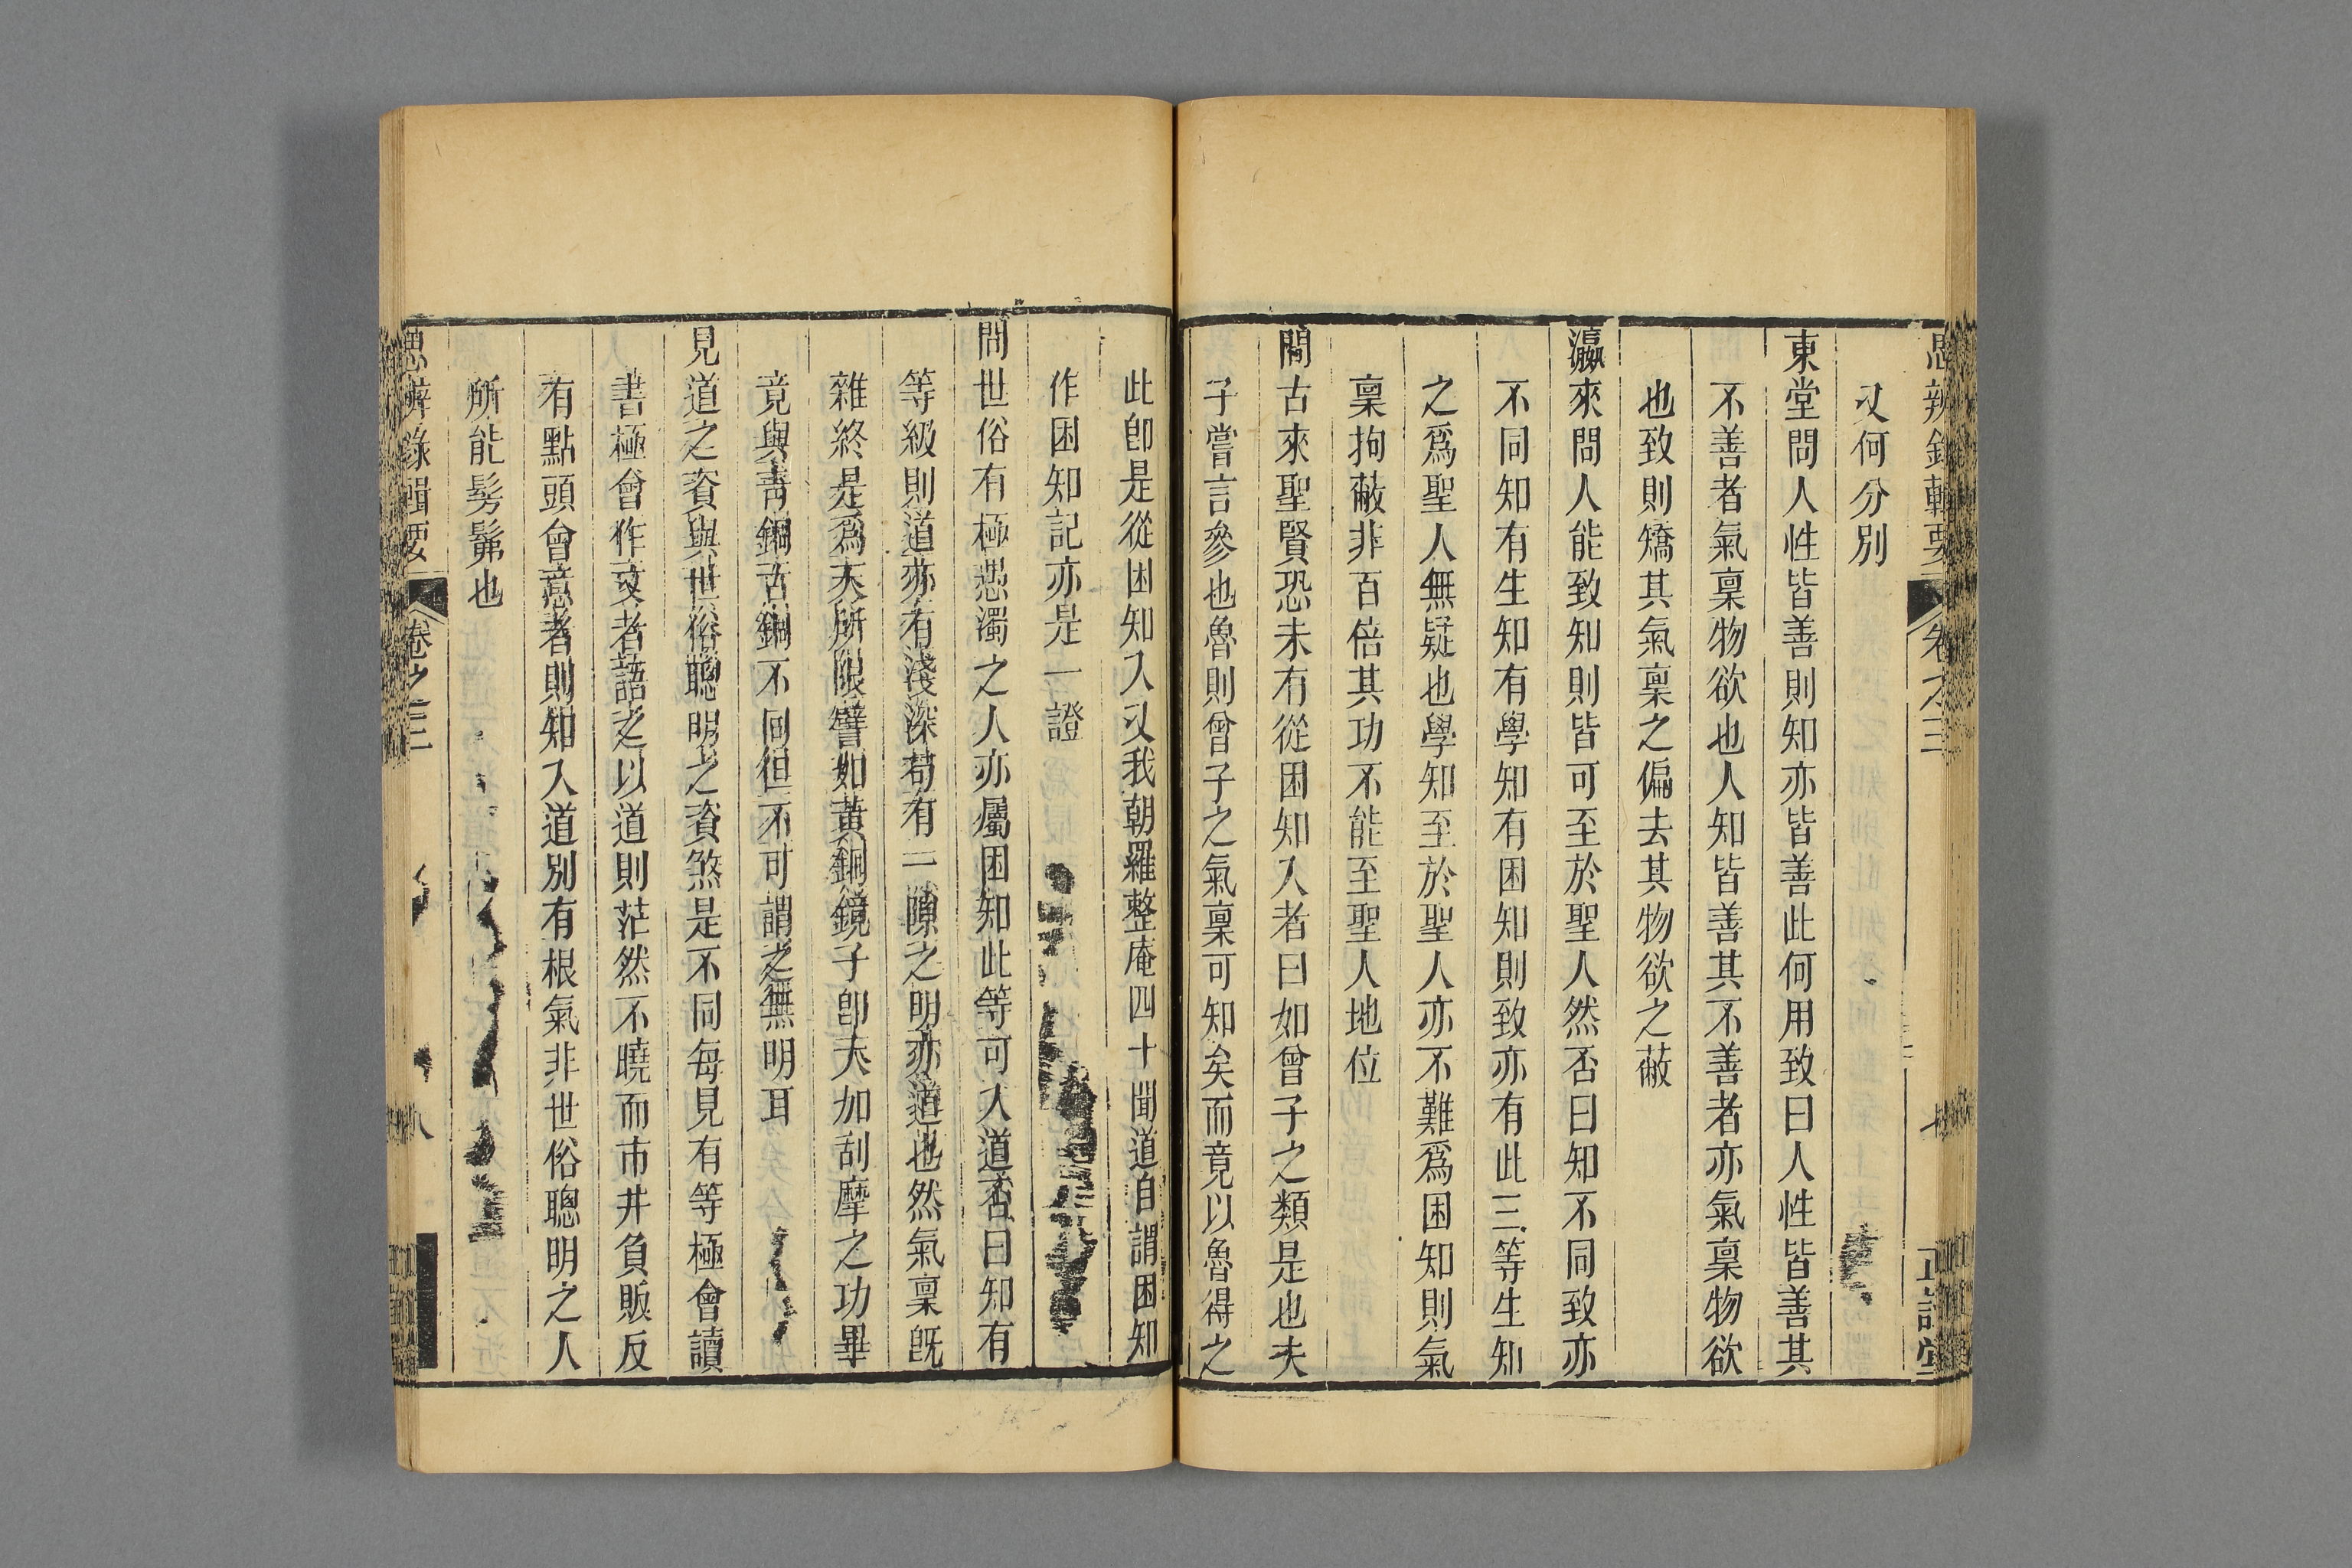 思辨錄輯要
卷之三
七
正誼堂
又何分別
東堂問人性皆善則知亦皆善此何用致曰人性皆善其
不善者氣稟物欲也人知皆善其不善者亦氣稟物欲
也致則矯其氣稟之偏去其物欲之蔽
瀛來問人能致知則皆可至於聖人然否曰知不同致亦
不同知有生知有學知有困知則致亦有此三等生知
之爲聖人無疑也學知至於聖人亦不難爲困知則氣
稟拘蔽非百倍其功不能至聖人地位
問古來聖賢恐未有從困知入者曰如曾子之類是也夫
子嘗言參也魯則曾子之氣稟可知矣而竟以魯得之
此卽是從困知入又我朝羅整庵四十聞道自謂困知
作困知記亦是一證
問世俗有極愚濁之人亦屬困知此等可入道否曰知有
等級則道亦有淺深苟有一隙之明亦道也然氣稟旣
雜終是爲天所限譬如黃銅鏡子卽大加刮摩之功畢
竟與靑銅古銅不同但不可謂之無明耳
見道之資與世俗聰明之資煞是不同每見有等極會讀
書極會作文者語之以道則茫然不曉而市井負販反
有點頭會意者則知入道別有根氣非世俗聰明之人
所能髣髴也
思辨錄輯要
卷之三
八